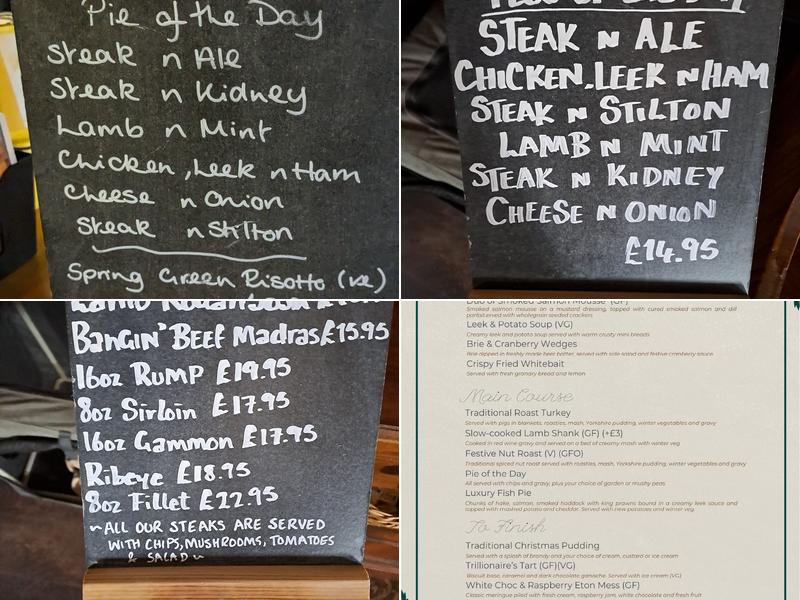 Pie of the Day
Steak n Ale
Steak n Kidney
Lamb n Mint
Chicken, Leek n Ham
Cheese n Onion
Steak n Stilton
Spring Green Risotto (ve)
STEAK N ALE
CHICKEN, LEEK N HAM
STEAK N STILTON
LAMB N MINT
STEAK N KIDNEY
CHEESE N ONION
£14.95
BANGIN' BEEF Madras £15.95
16oz RUMP £19.95
8oz Sirloin £17.95
16oz Gammon £17.95
Ribeye £18.95
8oz Fillet £22.95
~ALL OUR STEAKS ARE SERVED
WITH CHIPS, MUSHROOMS, TOMATOES
& SALAD~
Duo of Smoked Salmon Mousse (GF)
Smoked salmon mousse on a mustard dressing, topped with cured smoked salmon and dill
parfait served with wholegrain seeded crackers
Leek & Potato Soup (VG)
Creamy leek and potato soup served with warm crusty mini breads
Brie & Cranberry Wedges
Brie dipped in freshly made beer batter, served with side salad and festive cranberry sauce
Crispy Fried Whitebait
Served with fresh granary bread and lemon
Main Course
Traditional Roast Turkey
Served with pigs in blankets, roasties, mash, Yorkshire pudding, winter vegetables and gravy
Slow-cooked Lamb Shank (GF) (+£3)
Cooked in red wine gravy and served on a bed of creamy mash with winter veg
Festive Nut Roast (V) (GFO)
Traditional spiced nut roast served with roasties, mash, Yorkshire pudding, winter vegetables and gravy
Pie of the Day
All served with chips and gravy, plus your choice of garden or mushy peas
Luxury Fish Pie
Chunks of hake, salmon, smoked haddock with king prawns bound in a creamy leek sauce and
topped with mashed potato and cheddar. Served with new potatoes and winter veg.
To Finish
Traditional Christmas Pudding
Served with a splash of brandy and your choice of cream, custard or ice cream
Trillionaire's Tart (GF)(VG)
Biscuit base, caramel and dark chocolate ganache. Served with ice cream (VG)
White Choc & Raspberry Eton Mess (GF)
Classic meringue piled with fresh cream, raspberry jam, white chocolate and fresh fruit